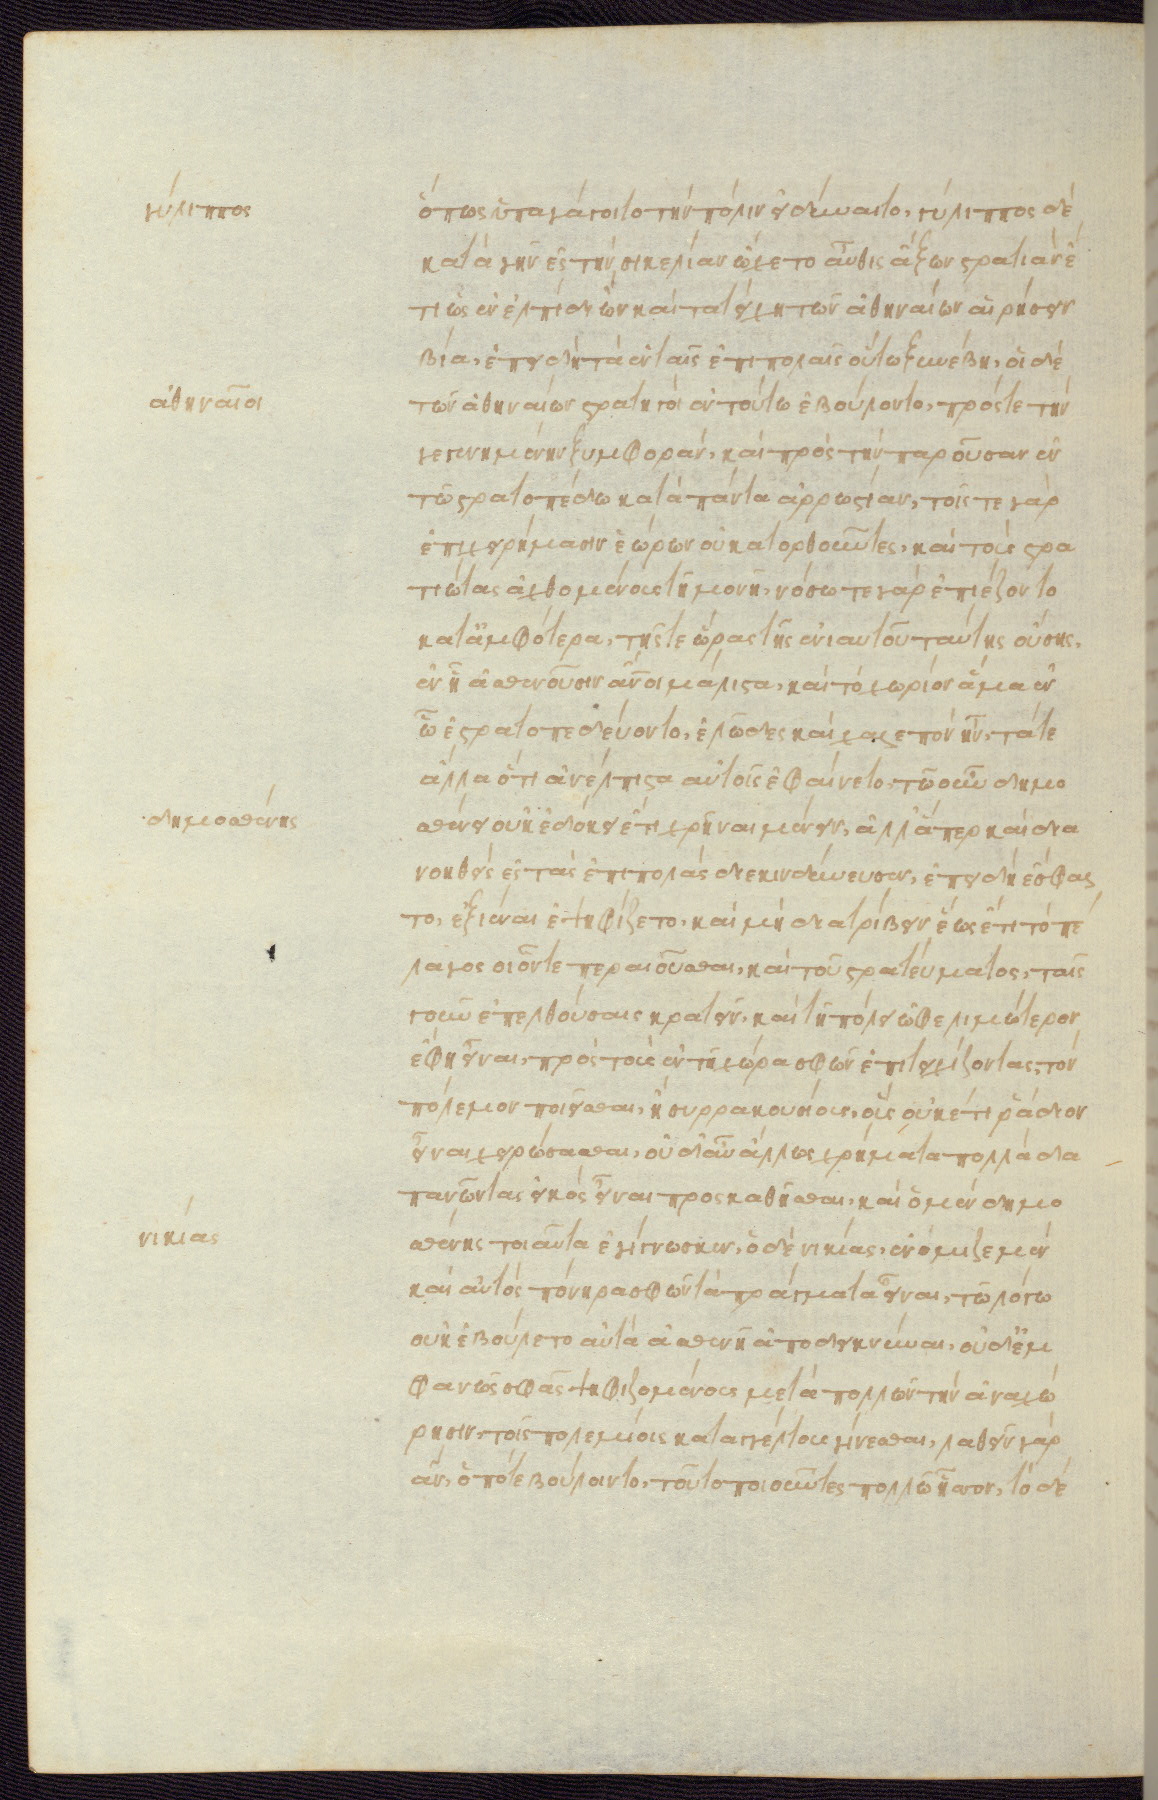 γύλιππος
ὅπως ὑπαγάγοιτο τὴν πόλιν εἰ δύναιτο, γύλιππος δὲ
κατὰ γῆν ἐς τὴν σικελίαν ὤχετο αὖθις ἄξων στρατιὰν ἔ
τι ὡς ἐν ἐλπίδι ὢν καὶ τὰ τείχη τῶν ἀθηναίων αἱρήσειν
βία, ἐπειδὴ τὰ ἐν ταῖς ἐπιπολαῖς οὕτω ξυνέβη, οἱ δὲ
ἀθηναῖοι
τῶν ἀθηναίων στρατηγοὶ ἐν τούτω ἐβούλοντο, πρός τε τὴν
γεγενημένην ξυμφορὰν, καὶ πρὸς τὴν παροῦσαν ἐν
τῶ στρατοπέδω κατὰ πάντα ἀρρωστίαν, τοῖς τε γὰρ
ἐπιχειρήμασιν ἑώρων οὐ κατορθοῦντες, καὶ τοὺς στρα
τιώτας ἀχθομένους τῆ μονῆ, νόσω τε γὰρ ἐπιέζοντο
κατ' ἀμφότερα, τῆς τε ὥρας τῆς ἐνιαυτοῦ ταύτης οὔσης,
ἐν ἧ ἀσθενοῦσιν ἄνοι μάλιστα, καὶ τὸ χωρίον ἅμα ἐν
ὧ ἐστρατοπεδεύοντο, ἑλῶδες καὶ χαλεπὸν ἦν, τά τε
ἄλλα ὅτι ἀνέλπιστα αὐτοῖς ἐφαίνετο, τῶ οὖν δημο
δημοσθένης
σθένει οὐκ ἐδόκει ἔτι χρῆναι μένειν, ἀλλ' ἅπερ καὶ δια
νοηθεὶς ἐς τὰς ἐπιπολὰς διεκινδύνευσεν, ἐπειδὴ ἔσφαλ
το, ἐξιέναι ἐψηφίζετο, καὶ μὴ διατρίβειν ἕως ἔτι τὸ πέ
λαγος οἷόντε περαιοῦσθαι, καὶ τοῦ στρατεύματος, ταῖς
γοῦν ἐπελθούσαις κρατεῖν, καὶ τῆ πόλει ὠφελιμώτερον
ἔφη εἶναι, πρὸς τοὺς ἐν τῆ χώρα σφῶν ἐπιτειχίζοντας, τὸν
πόλεμον ποιεῖσθαι, ἢ συρρακουσίους, οὓς οὐκέτι ῥάδιον
εἶναι χειρώσασθαι, οὐδ' αὖ ἄλλως χρήματα πολλὰ δα
πανῶντας εἰκὸς εἶναι προσκαθῆσθαι, καὶ ὁ μὲν δημο
νικίας
σθένης τοιαῦτα ἐγίγνωσκεν, ὁ δὲ νικίας, ἐνόμιζε μὲν
καὶ αὐτὸς πόνηρα σφῶν τὰ πράγματα εἶναι, τῶ λόγω
οὐκ ἐβούλετο αὐτὰ ἀσθενῆ ἀποδεικνύναι, οὐδ' ἐμ
φανῶς σφᾶς ψηφιζομένους μετὰ πολλῶν τὴν ἀναχώ
ρησιν, τοῖς πολεμίοις καταγγέλτους γίνεσθαι, λαθεῖν γὰρ
ἂν, ὁπότε βούλοιντο, τοῦτο ποιοῦντες πολλῶ ἧσσον, τὸ δὲ